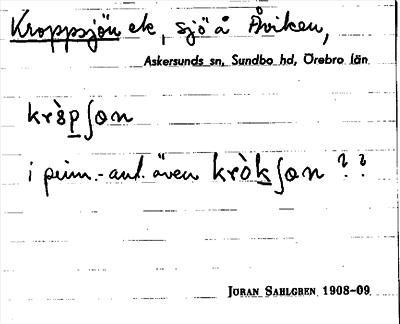 Kroppsjön ek, sjö å Åviken,
Askersunds sn, Sundbo hd, Örebro län
krò̀pʃon
i prim.-ant. även kròkʃon ??
JÖRAN SAHLGREN 1908-09